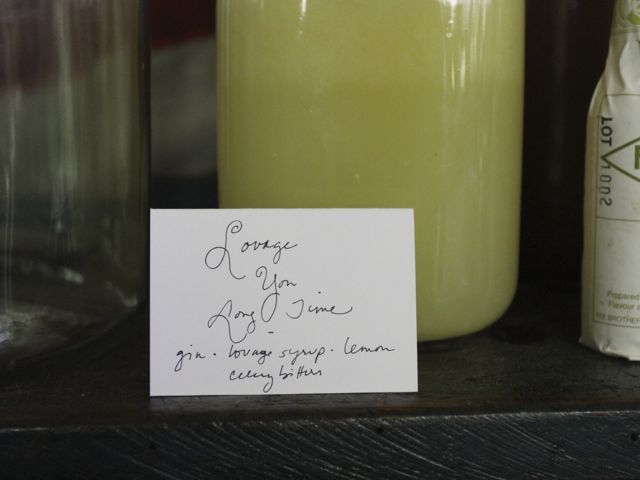 Lovage
You
Long Time
-
gin · lovage syrup · lemon
celery bitters
LOT
1002
Prepared
Flavour a
EE BROTHER